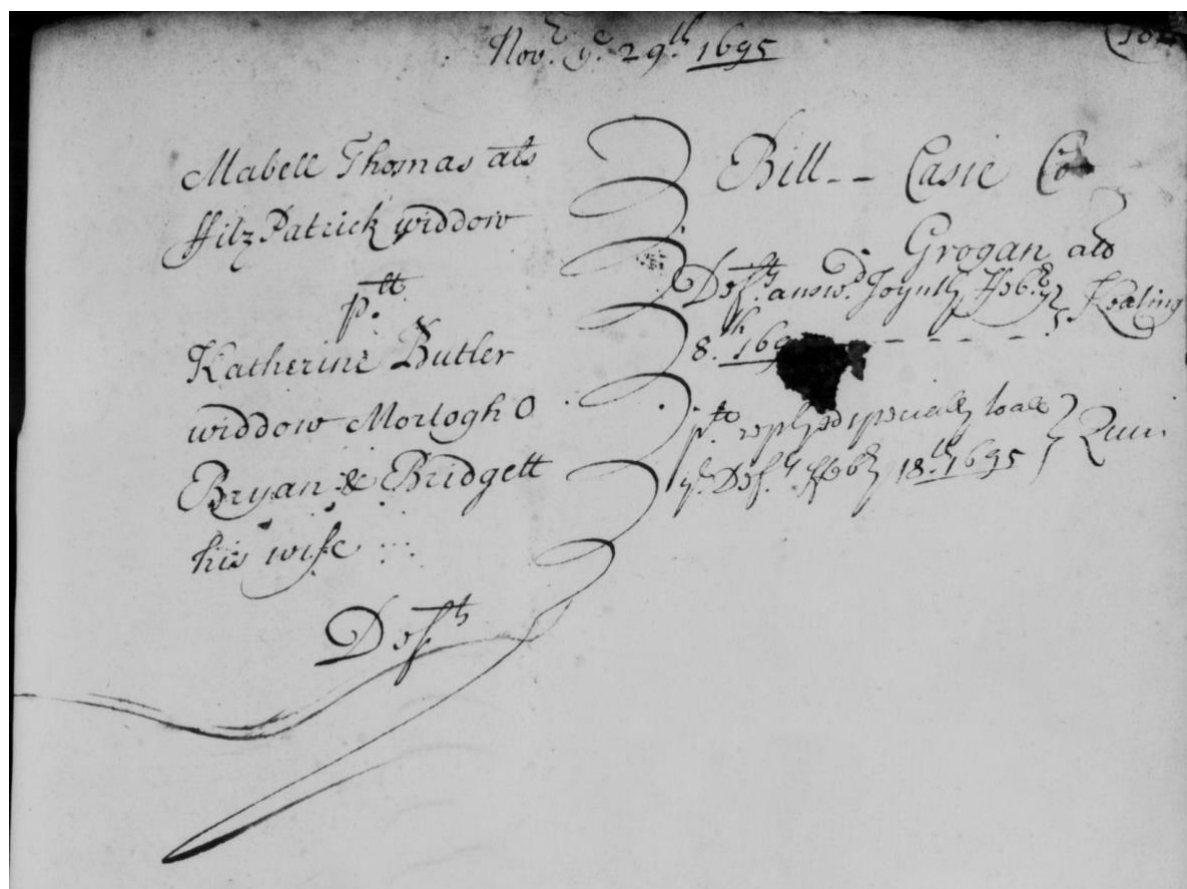 Nov.r ye 29.th 1695
Mabell Thomas als
ffitzPatrick widdow
p.ltt
Katherine Butler
widdow Mortogh O
Bryan & Bridgett
his wife
Def.ts
Bill -- Casie Co
Grogan als
Def.ts answ.d Joyntly ffeb.ry } Keating
8.th 169
p.lt replyed specially to all }
ye Def.ts ffeb.ry 18.th 1695 }